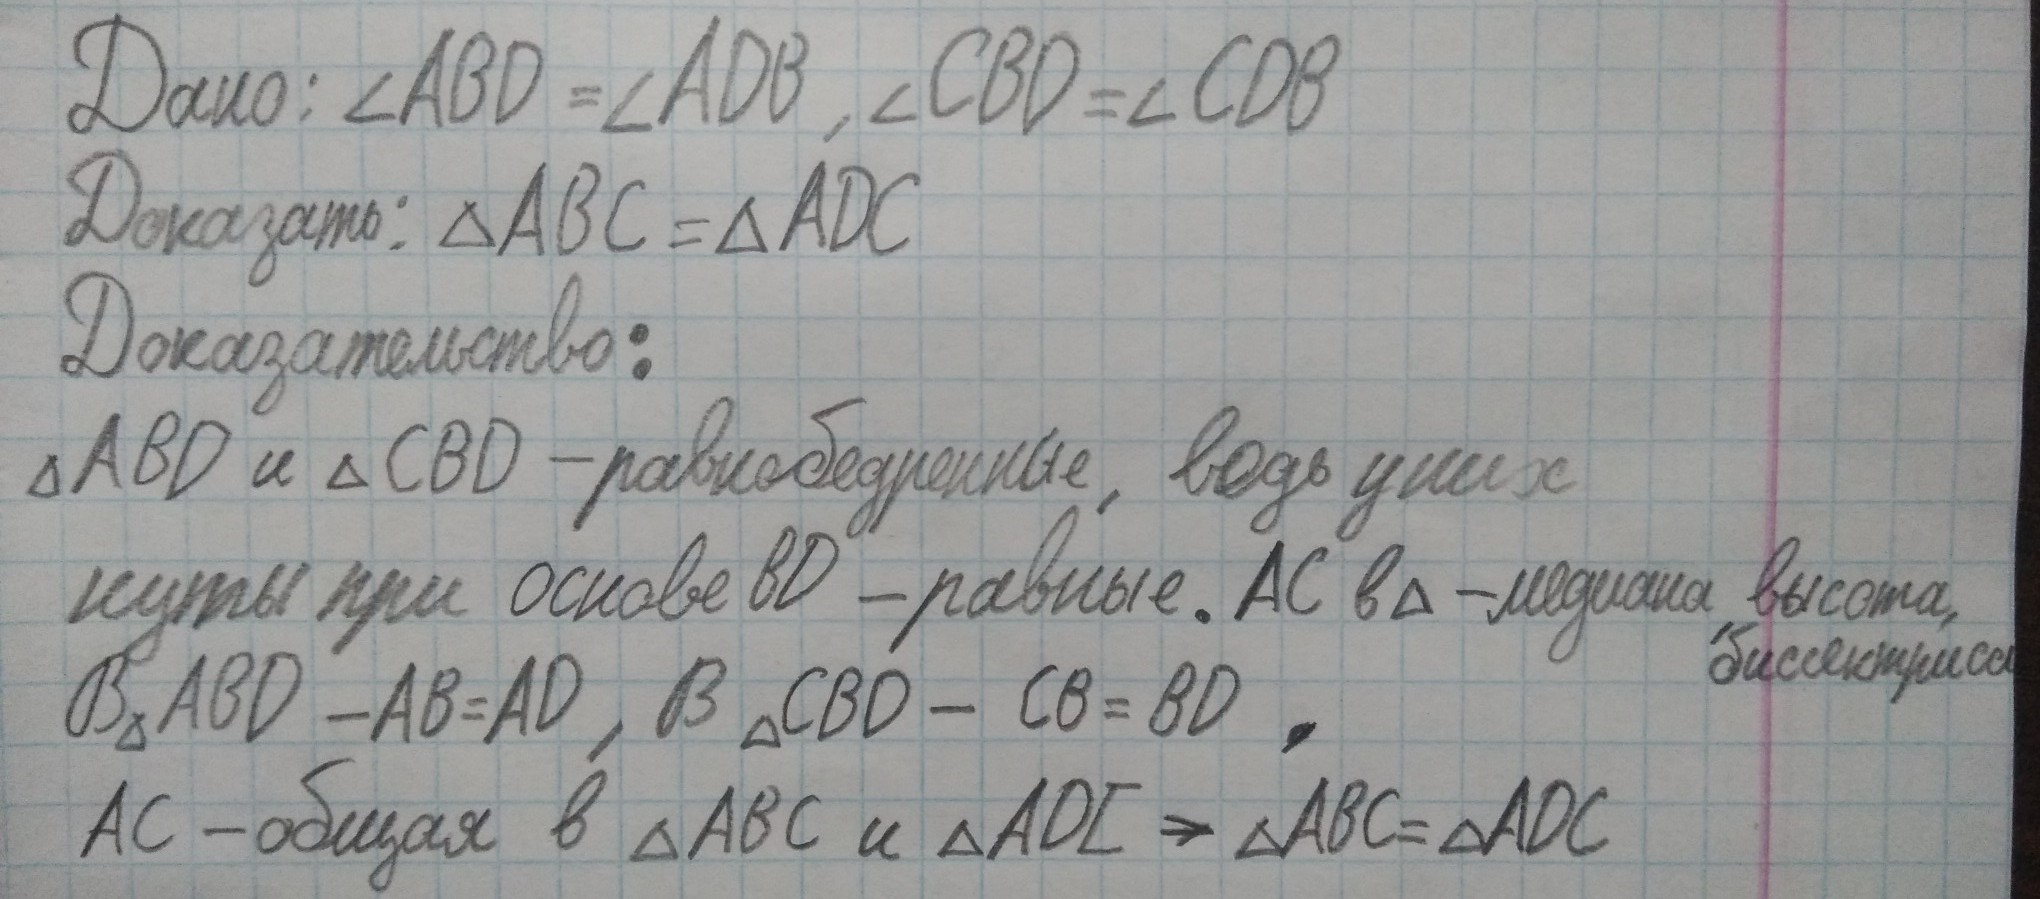 Дано: ∠ABD = ∠ADB, ∠CBD = ∠CDB
Доказать: △ABC = △ADC
Доказательство:
△ABD и △CBD – равнобедренные, водь у них
куты при основе BD – равные. AC в △ – медиана, высота,
биссектриса
В △ABD – AB = AD, В △CBD – CB = BD.
AC – общая в △ABC и △ADC → △ABC = △ADC